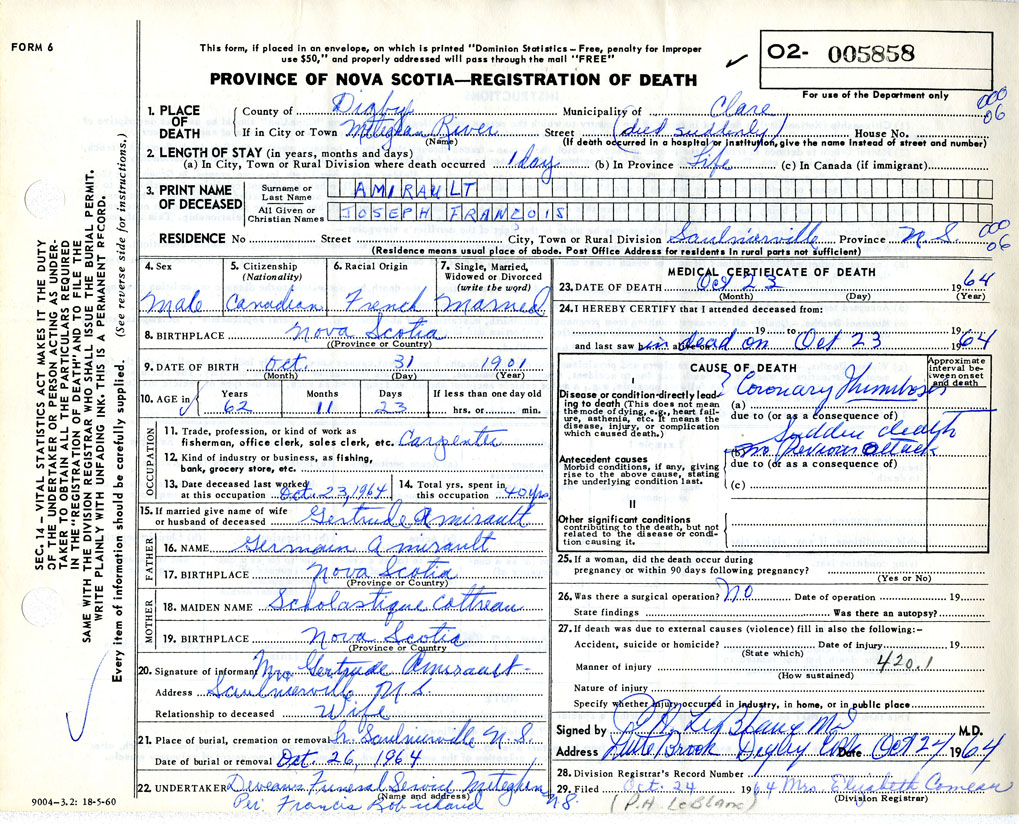 FORM 6
This form, if placed in an envelope, on which is printed "Dominion Statistics – Free, penalty for improper
use $50," and properly addressed will pass through the mail "FREE"
PROVINCE OF NOVA SCOTIA—REGISTRATION OF DEATH
O2- 005858
For use of the Department only
000
06
1. PLACE OF DEATH
County of Digby Municipality of Clare
If in City or Town Meteghan River Street (died suddenly) House No.
(Name) (If death occurred in a hospital or institution, give the name instead of street and number)
2. LENGTH OF STAY (in years, months and days)
(a) In City, Town or Rural Division where death occurred 1 day (b) In Province Life (c) In Canada (if immigrant)
3. PRINT NAME OF DECEASED
Surname or Last Name AMIRAULT
All Given or Christian Names JOSEPH FRANCOIS
RESIDENCE No Street City, Town or Rural Division Saulnierville Province N.S. 000
06
(Residence means usual place of abode. Post Office Address for residents in rural parts not sufficient)
4. Sex
Male
5. Citizenship
(Nationality)
Canadian
6. Racial Origin
French
7. Single, Married,
Widowed or Divorced
(write the word)
Married
8. BIRTHPLACE Nova Scotia
(Province or Country)
9. DATE OF BIRTH Oct. 31 1901
(Month) (Day) (Year)
10. AGE in Years Months Days If less than one day old
62 11 23 hrs. or min.
OCCUPATION
11. Trade, profession, or kind of work as
fisherman, office clerk, sales clerk, etc. Carpenter
12. Kind of industry or business, as fishing,
bank, grocery store, etc.
13. Date deceased last worked
at this occupation Oct. 23, 1964
14. Total yrs. spent in
this occupation 40 yrs
15. If married give name of wife
or husband of deceased Gertrude Amirault
FATHER
16. NAME Germain Amirault
17. BIRTHPLACE Nova Scotia
(Province or Country)
MOTHER
18. MAIDEN NAME Scholastique Cottreau
19. BIRTHPLACE Nova Scotia
(Province or Country
20. Signature of informant Mrs Gertrude Amirault
Address Saulnierville N.S.
Relationship to deceased Wife
21. Place of burial, cremation or removal Saulnierville N.S.
Date of burial or removal Oct. 26, 1964
22. UNDERTAKER Deveau's Funeral Service Meteghan N.S.
(Name and address)
Per. Francis Robichaud
MEDICAL CERTIFICATE OF DEATH
23. DATE OF DEATH Oct 23 1964
(Month) (Day) (Year)
24. I HEREBY CERTIFY that I attended deceased from:
19 to 19
and last saw h im alive on dead on Oct 23 1964
CAUSE OF DEATH
Approximate interval between onset and death
I
Disease or condition directly leading to death (This does not mean
the mode of dying, e.g., heart failure, asthenia, etc. It means the
disease, injury, or complication
which caused death.)
(a) Coronary Thrombosis
due to (or as a consequence of)
Sudden death
Antecedent causes
Morbid conditions, if any, giving
rise to the above cause, stating
the underlying condition last.
(b) no previous attack
due to (or as a consequence of)
(c)
II
Other significant conditions
contributing to the death, but not
related to the disease or condition causing it.
25. If a woman, did the death occur during
pregnancy or within 90 days following pregnancy?
(Yes or No)
26. Was there a surgical operation? No Date of operation 19
State findings Was there an autopsy?
27. If death was due to external causes (violence) fill in also the following:–
Accident, suicide or homicide? Date of injury 19
(State which)
Manner of injury 420.1
(How sustained)
Nature of injury
Specify whether injury occurred in industry, in home, or in public place
Signed by P H LeBlanc M.D. M.D.
Address Little Brook Digby Co Date Oct 24 1964
28. Division Registrar's Record Number
29. Filed Oct. 24 1964 Mrs. Elizabeth Comeau
(P.H. LeBlanc) (Division Registrar)
SEC. 14 – VITAL STATISTICS ACT MAKES IT THE DUTY
OF THE UNDERTAKER OR PERSON ACTING AS UNDER-
TAKER TO OBTAIN ALL THE PARTICULARS REQUIRED
IN THE "REGISTRATION OF DEATH" AND TO FILE THE
SAME WITH THE DIVISION REGISTRAR WHO SHALL ISSUE THE BURIAL PERMIT.
WRITE PLAINLY WITH UNFADING INK. THIS IS A PERMANENT RECORD.
Every item of information should be carefully supplied. (See reverse side for instructions.)
9004–3.2: 18-5-60